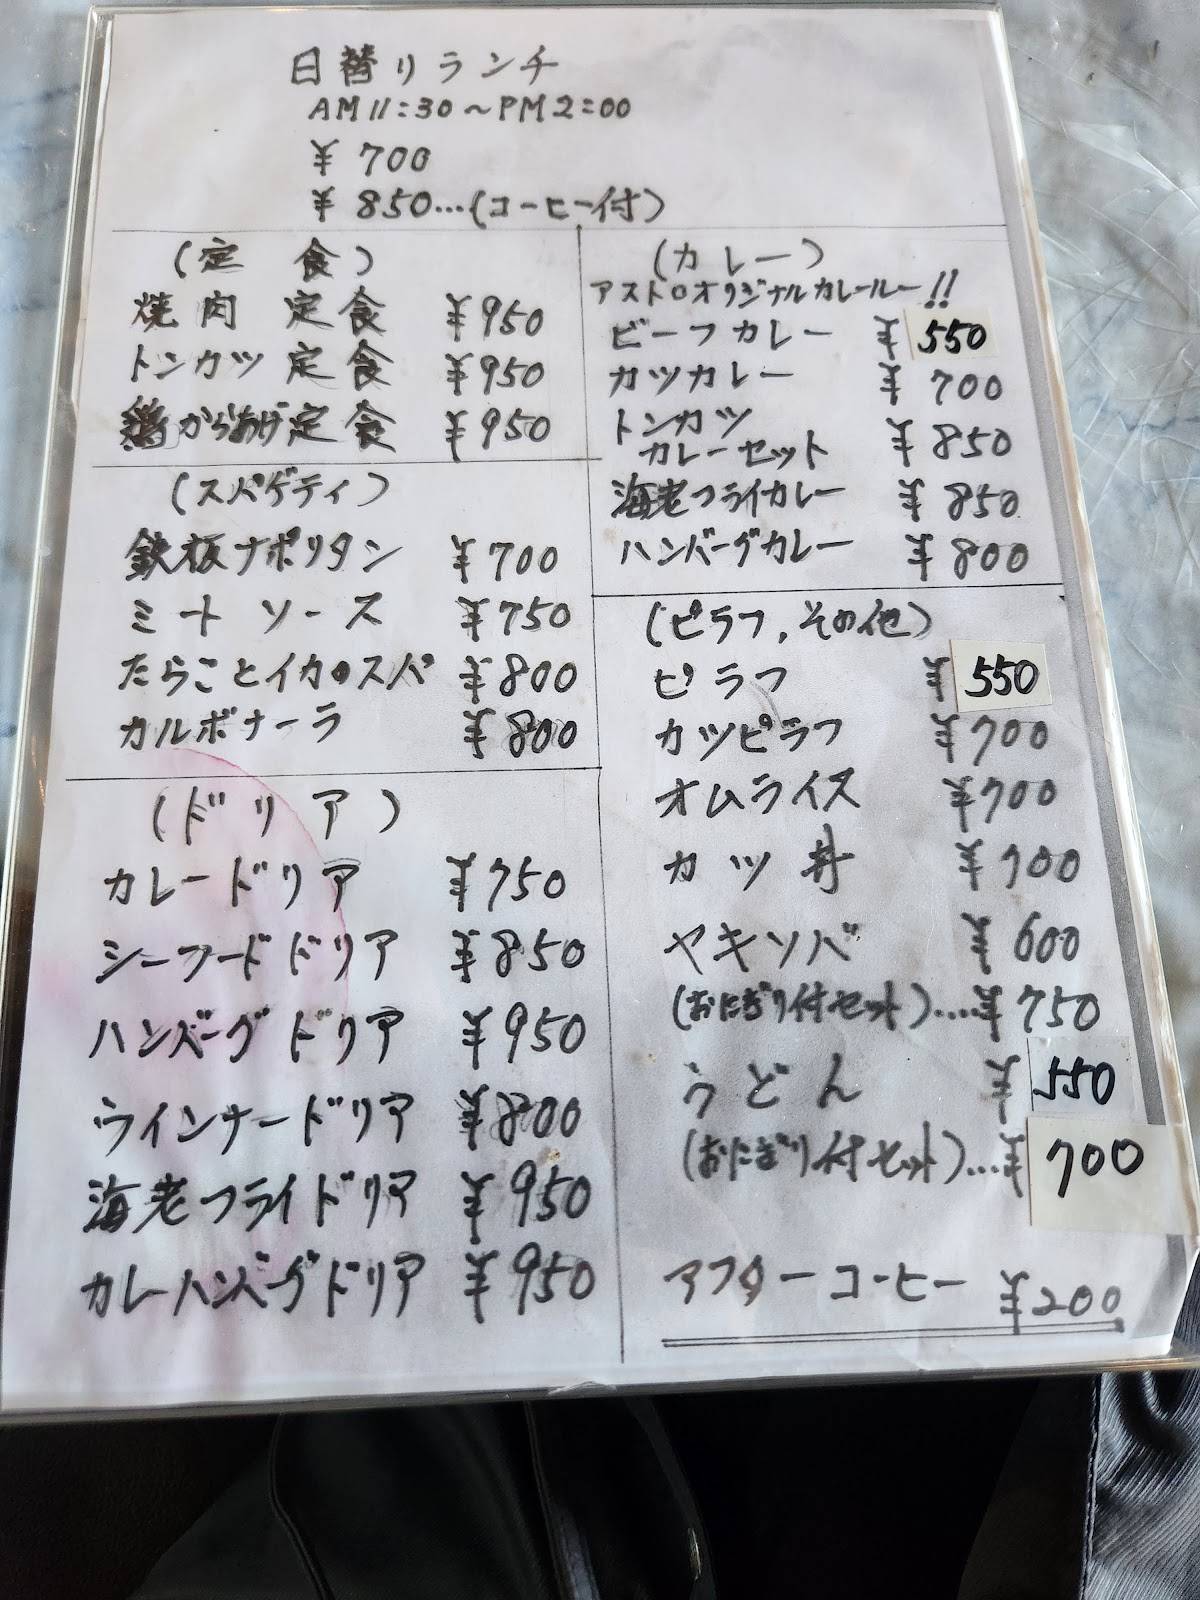 日替りランチ
AM11:30～PM2:00
¥700
¥850…(コーヒー付)
(定食)
焼肉定食 ¥950
トンカツ定食 ¥950
鶏からあげ定食 ¥950
(スパゲティ)
鉄板ナポリタン ¥700
ミートソース ¥750
たらことイカのスパ ¥800
カルボナーラ ¥800
(ドリア)
カレードリア ¥750
シーフードドリア ¥850
ハンバーグドリア ¥950
ウインナードリア ¥800
海老フライドリア ¥950
カレーハンバーグドリア ¥950
(カレー)
アストロオリジナルカレールー!!
ビーフカレー ¥550
カツカレー ¥700
トンカツ
カレーセット ¥850
海老フライカレー ¥850
ハンバーグカレー ¥800
(ピラフ,その他)
ピラフ ¥550
カツピラフ ¥700
オムライス ¥700
カツ丼 ¥700
ヤキソバ ¥600
(おにぎり付セット)….¥750
うどん ¥550
(おにぎり付セット)…¥700
アフターコーヒー ¥200